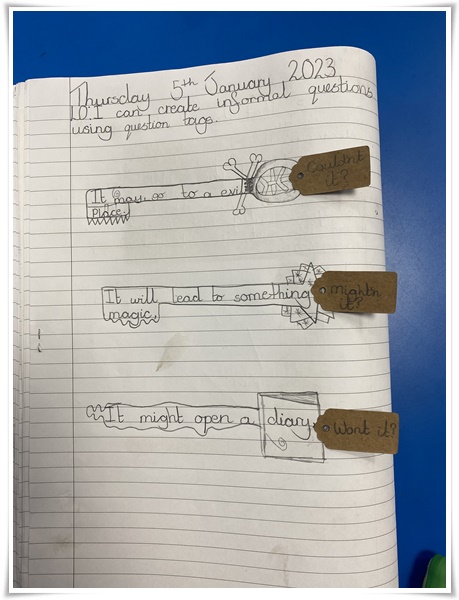 Thursday 5th January 2023
L.O.I can create informal questions
using question tags.
It may go to a evil
Place.
Couldn't
it?
It will lead to something
magic.
mightn
it?
It might open a diary
Wont it?